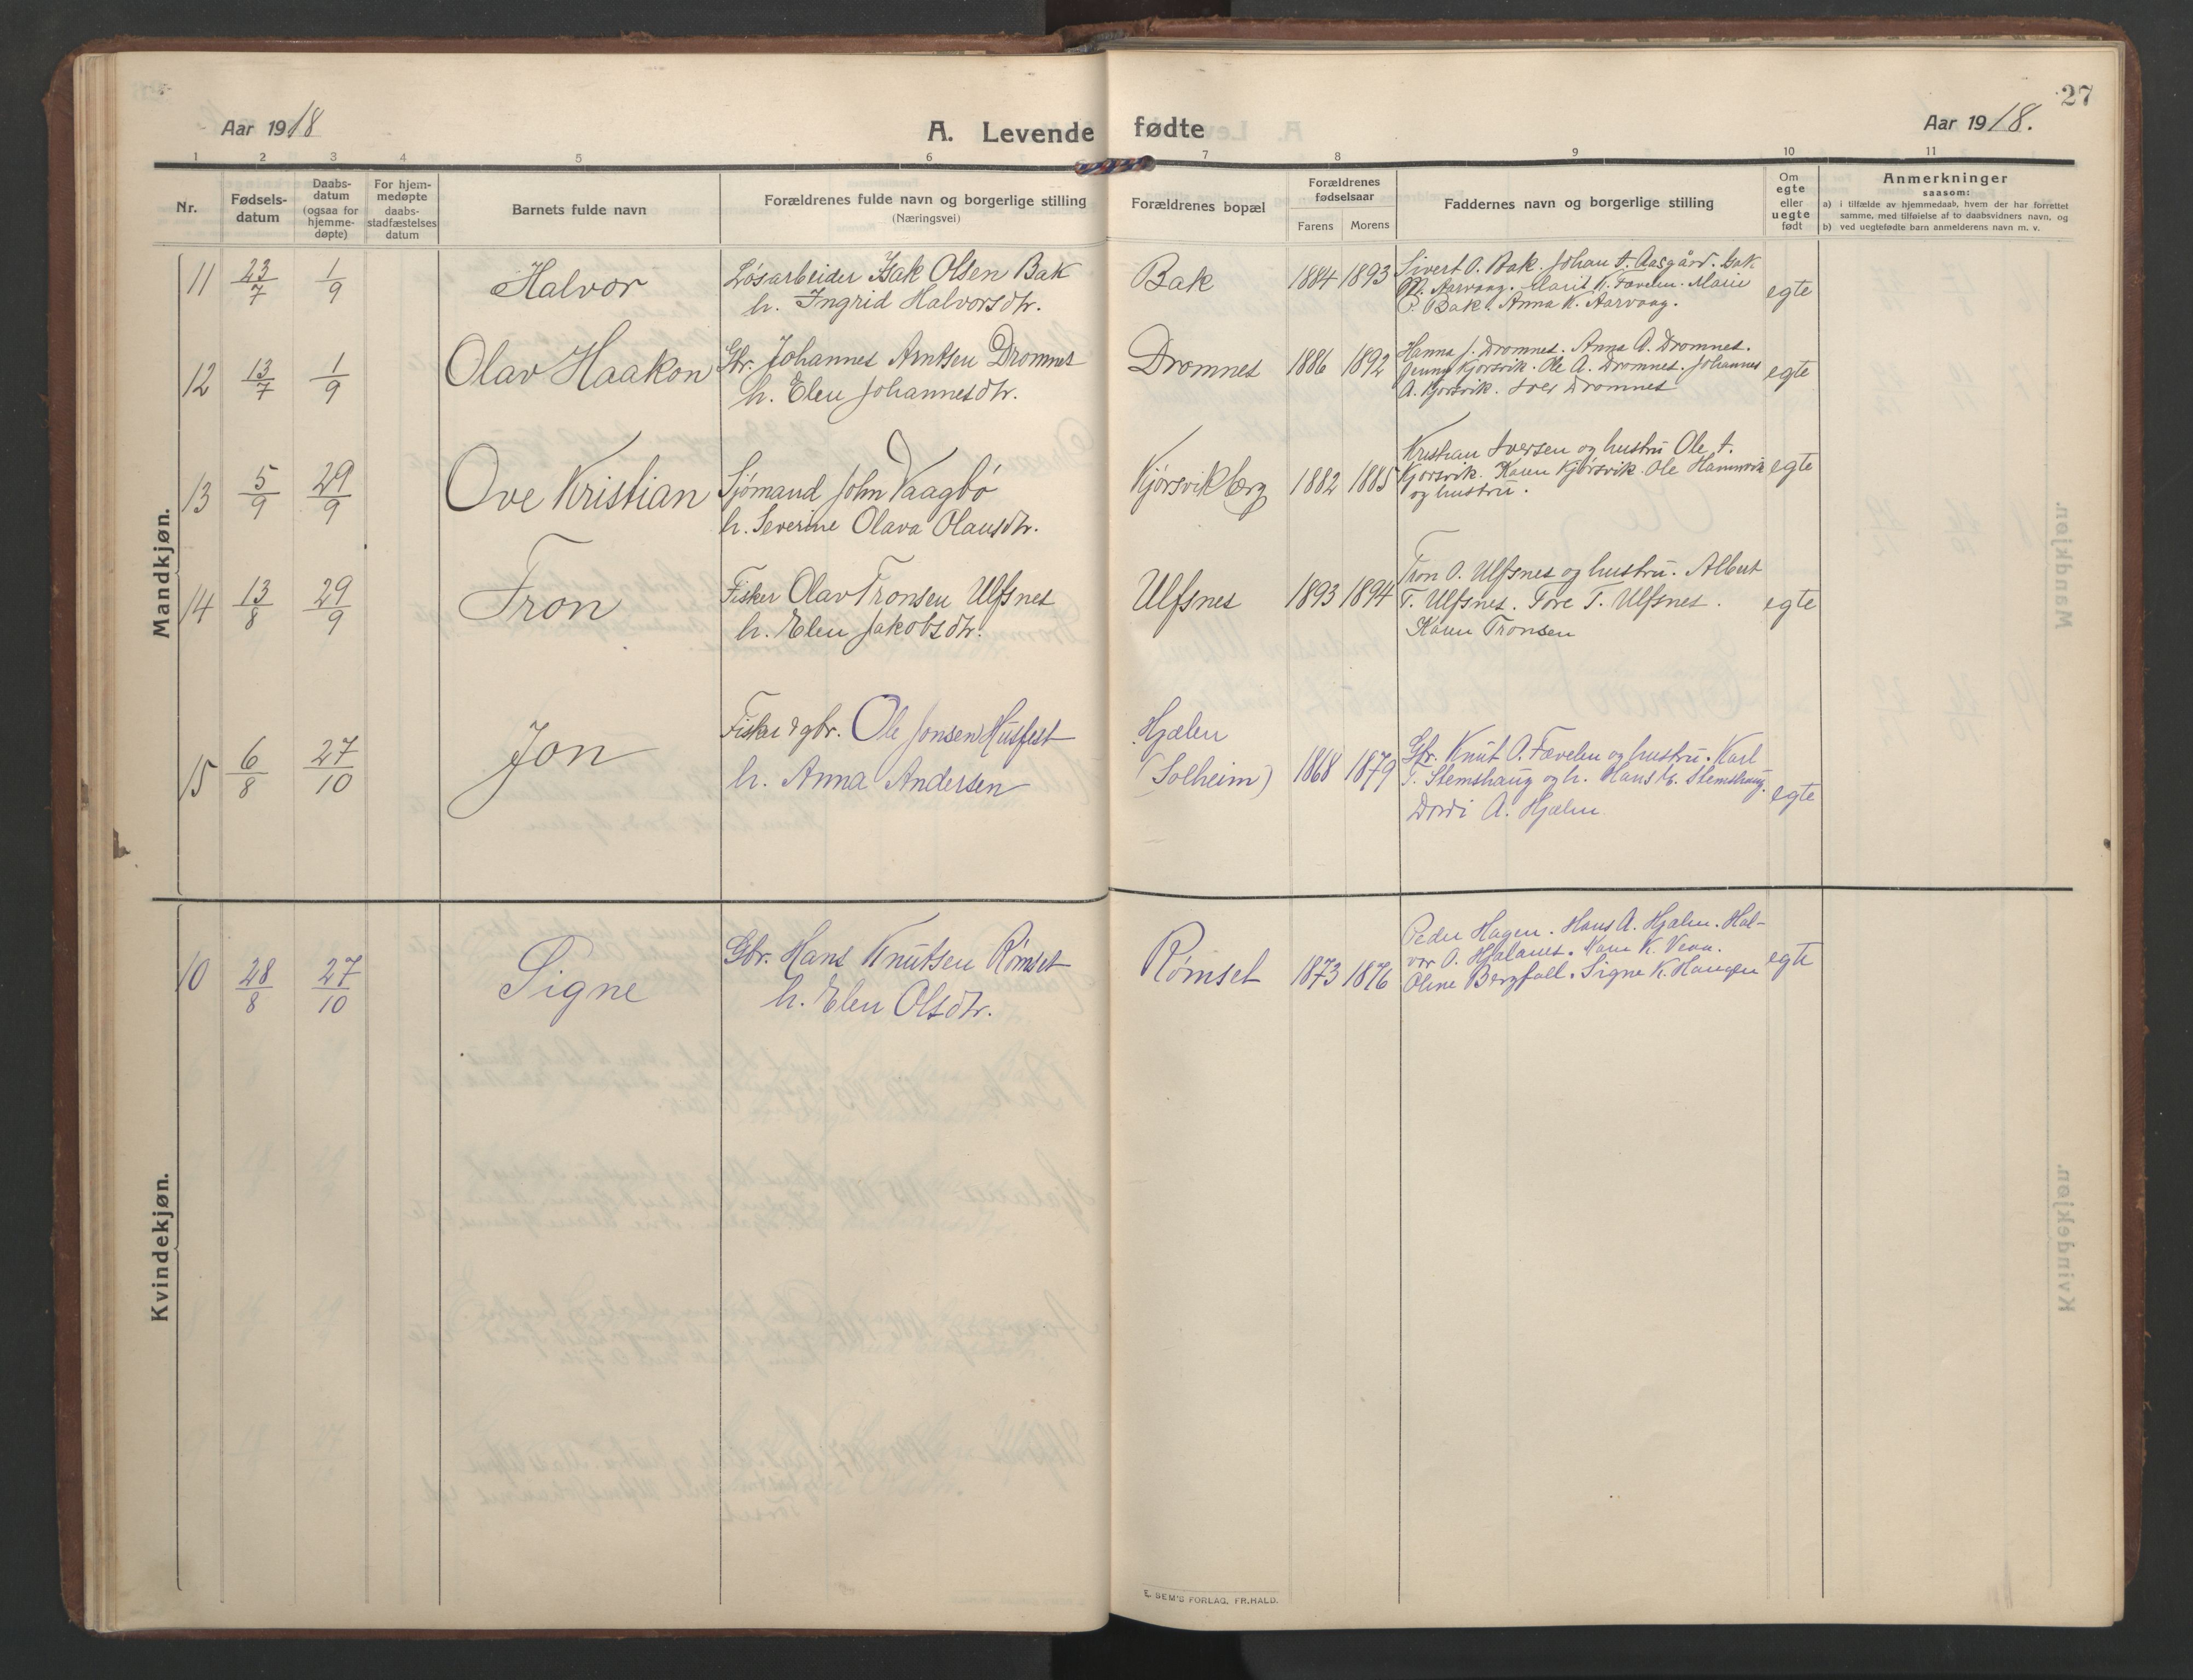 27
Aar 1918
A. Levende fødte
Aar 1918.
1 2 3 4 5 6 7 8 9 10 11
Nr.
Fødsels-
datum
Daabs-
datum
(ogsaa for
hjemme-
døpte)
For hjem-
medøpte
daabs-
stadfæstelses
datum
Barnets fulde navn
Forældrenes fulde navn og borgerlige stilling
(Næringsvei)
Forældrenes bopæl
Forældrenes
fødselsaar
Farens Morens
Faddernes navn og borgerlige stilling
Om
egte
eller
uegte
født
Anmerkninger
saasom:
a) i tilfælde av hjemmedaab, hvem der har forrettet
samme, med tilføielse af to daabsvidners navn, og
b) ved uegtefødte barn anmelderens navn m. v.
Mandkjøn.
11 23/7 1/9 Halvor
Løsarbeider Isak Olsen Bak
h. Ingrid Halvorsdtr.
Bak 1884 1893
Sivert O. Bak. Johan A. Aasgård. Isak
M. Aarvaag. Marit K. Fævelen. Marie
O. Bak. Anna K. Aarvaag.
egte
12 13/7 1/9 Olav Haakon
Gbr. Johannes Arntsen Dromnes
h. Elen Johannesdtr.
Dromnes 1886 1892
Hanna J. Dromnes. Anna A. Dromnes.
Jenny Kjørsvik. Ole A. Dromnes. Johannes
A. Kjørsvik. Iver Dromnes
egte
13 5/9 29/9 Ove Kristian
Sjømand John Vaagbø
h. Severine Olava Olausdtr.
Kjørsvikberg 1882 1885
Kristian Iversen og hustru Ole A.
Kjørsvik. Karen Kjørsvik. Ole Hamnvik
og hustru.
egte
14 13/8 29/9 Tron
Fisker Olav Tronsen Ulfsnes
h. Elen Jakobsdtr.
Ulfsnes 1893 1894
Tron O. Ulfsnes og hustru. Albert
T. Ulfsnes. Tore T. Ulfsnes.
Karen Tronsen
egte
15 6/8 27/10 Jon
Fisker & gbr. Ole Jonsen Husfest
h. Anna Andersen
Hjælen
(Solheim) 1868 1879
Gbr. Knut O. Fævelen og hustru. Karl
T. Stemshaug og h. Hans E. Stemshaug.
Dordi A. Hjælen
egte
Kvindekjøn.
10 28/8 27/10 Signe
Gbr. Hans Knutsen Rømset
h. Elen Olsdtr.
Rømset 1873 1876
Peder Hagen. Hans A. Hjælen. Hal-
vor O. Hjalanes. Karen K.
Oline Bergfall. Signe K. Haugen
egte
E. SEM'S FORLAG, FR.HALD.